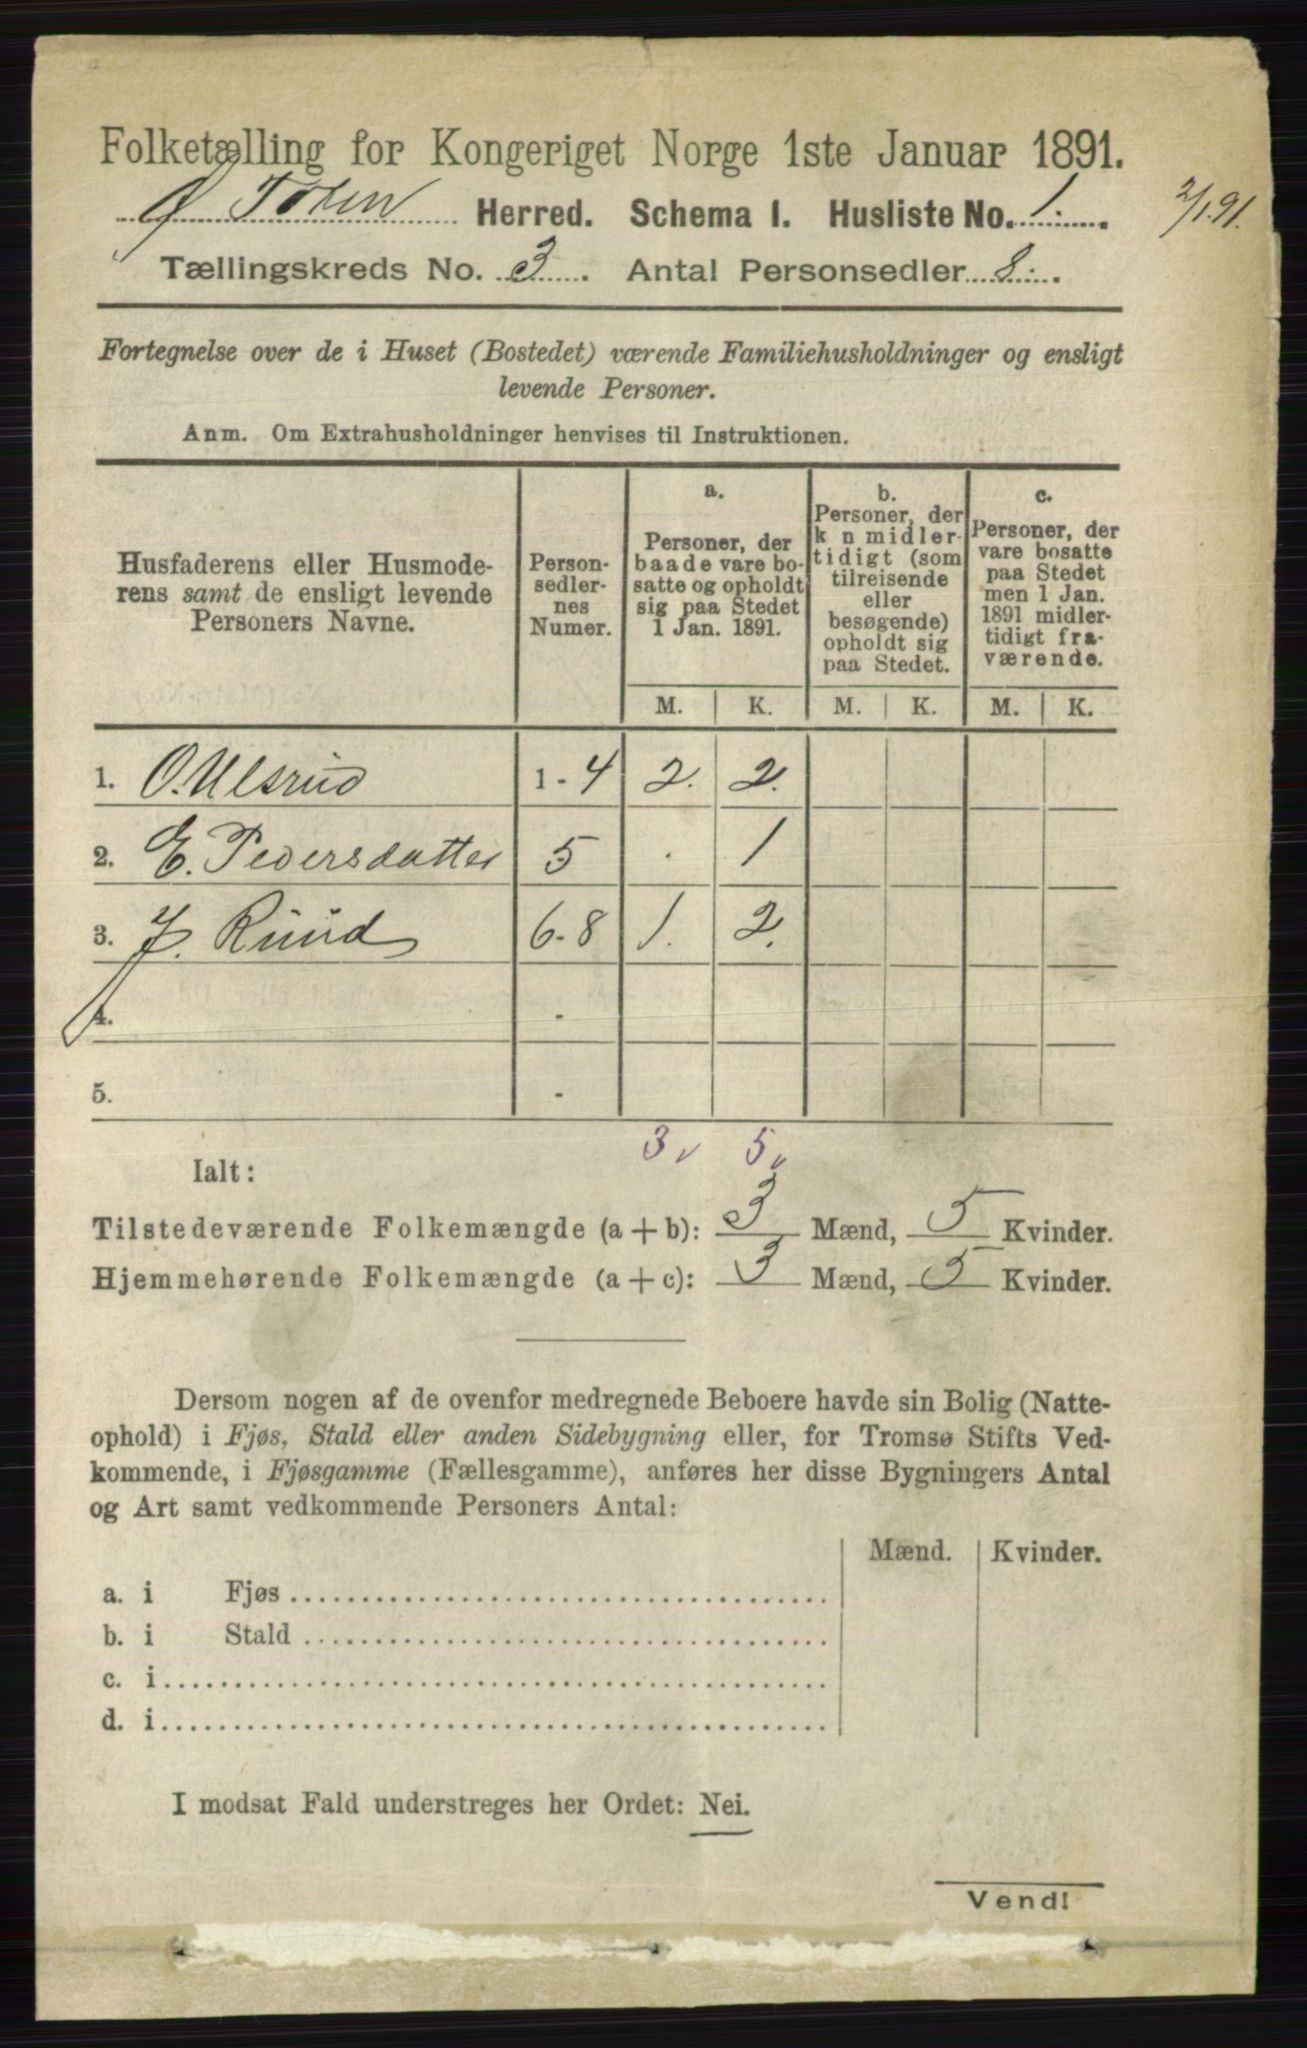 Folketælling for Kongeriget Norge 1ste Januar 1891.
Ø Toten Herred. Schema I. Husliste No. 1.
2/1.91.
Tællingskreds No. 3. Antal Personsedler 8.
Fortegnelse over de i Huset (Bostedet) værende Familiehusholdninger og ensligt
levende Personer.
Anm. Om Extrahusholdninger henvises til Instruktionen.
Husfaderens eller Husmode-
rens samt de ensligt levende
Personers Navne.
Person-
sedler-
nes
Numer.
a.
Personer, der
baade vare bo-
satte og opholdt
sig paa Stedet
1 Jan. 1891.
b.
Personer, der
k n midler-
tidigt (som
tilreisende
eller
besøgende)
opholdt sig
paa Stedet.
c.
Personer, der
vare bosatte
paa Stedet
men 1 Jan.
1891 midler-
tidigt fra-
værende.
M. K. M. K. M. K.
1. O. Ulsrud 1 - 4 2. 2.
2. E. Pedersdatter 5 . 1
3. J. Ruud 6 - 8 1. 2.
4. -
5. -
3 v 5 v
Ialt:
Tilstedeværende Folkemængde (a + b): 3 Mænd, 5 Kvinder.
Hjemmehørende Folkemængde (a + c): 3 Mænd, 5 Kvinder.
Dersom nogen af de ovenfor medregnede Beboere havde sin Bolig (Natte-
ophold) i Fjøs, Stald eller anden Sidebygning eller, for Tromsø Stifts Ved-
kommende, i Fjøsgamme (Fællesgamme), anføres her disse Bygningers Antal
og Art samt vedkommende Personers Antal:
Mænd. Kvinder.
a. i Fjøs
b. i Stald
c. i
d. i
I modsat Fald understreges her Ordet: Nei.
Vend!